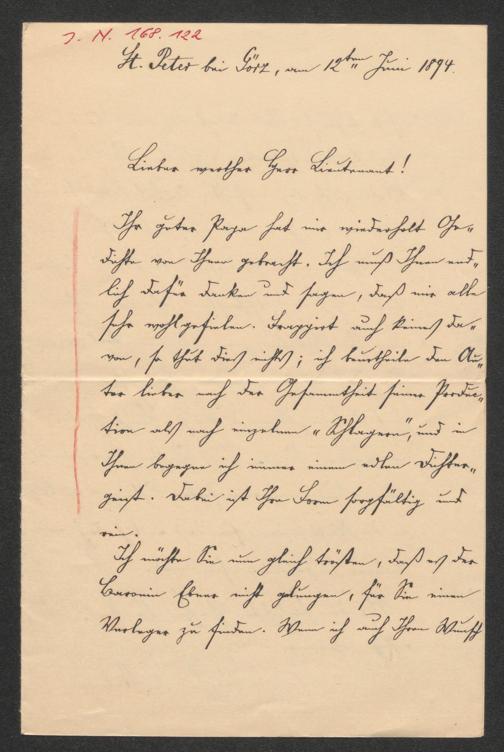 J. N. 168.122
St. Peter bei Görz, am 12ten Juni 1894.
Lieber werther Herr Lieutenant!
Ihr guter Papa hat mir wiederholt Ge„
dichte von Ihnen gebracht. Ich muß Ihnen end„
lich dafür danken und sagen, daß mir alle
sehr wohlgefielen. Frappirt auch keines da„
von, so thut dies nichts; ich beurtheile den Au„
tor lieber nach der Gesammtheit seiner Produc„
tion als nach einzelnen „Schlagern", und in
Ihnen begegne ich immer einem edlen Dichter„
geist. Dabei ist Ihre Form sorgfältig und
rein.
Ich möchte Sie nun gleich trösten, daß es der
Baronin Ebner nicht gelungen, für Sie einen
Verleger zu finden. Wenn ich auch Ihren Wunsch